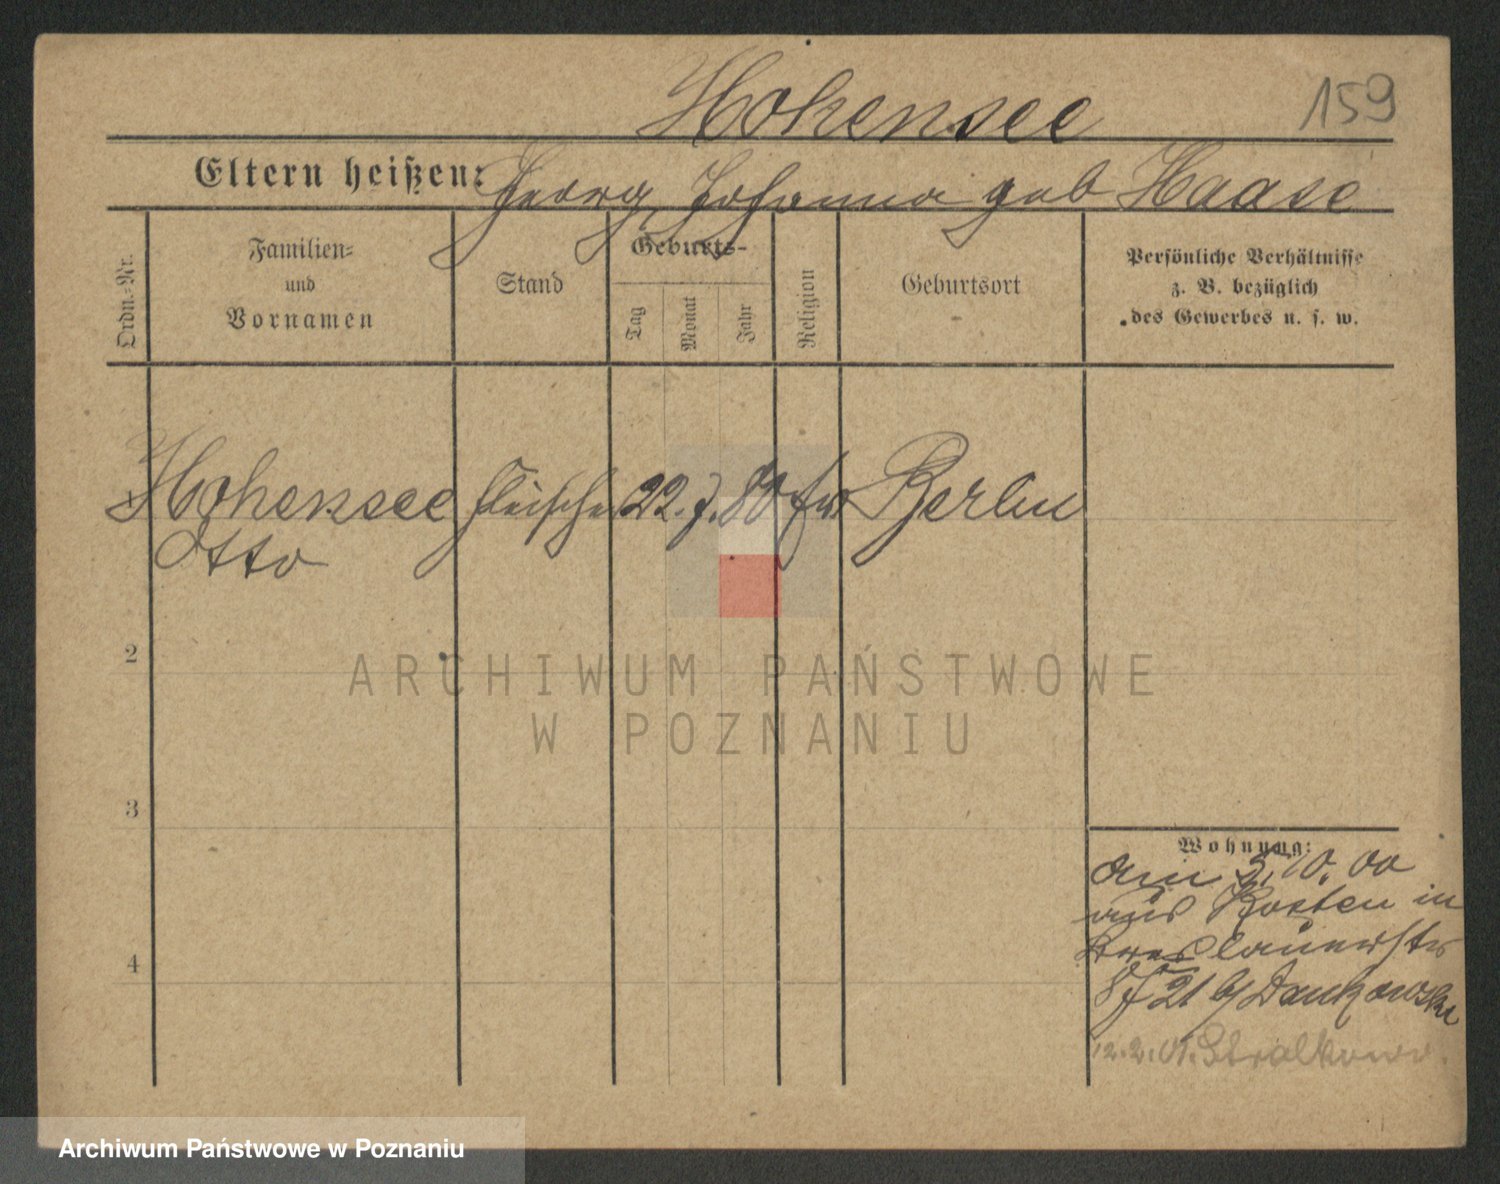 Hohensee
159
Eltern heißen: Georg, Johanna geb Haase
Ordn.-Nr.
Familien-
und
Vornamen
Stand
Geburts-
Tag
Monat
Jahr
Religion
Geburtsort
Persönliche Verhältnisse
z. B. bezüglich
des Gewerbes u. s. w.
Hohensee Fleischer 22. 7. 80 Berlin
Otto
2
3
4
Wohnung:
am 5.10.00
aus Kosten in
Breslauerstr
21 b/ Dankowski
12.2.01. Stralkowo.
ARCHIWUM PAŃSTWOWE
W POZNANIU
Archiwum Państwowe w Poznaniu